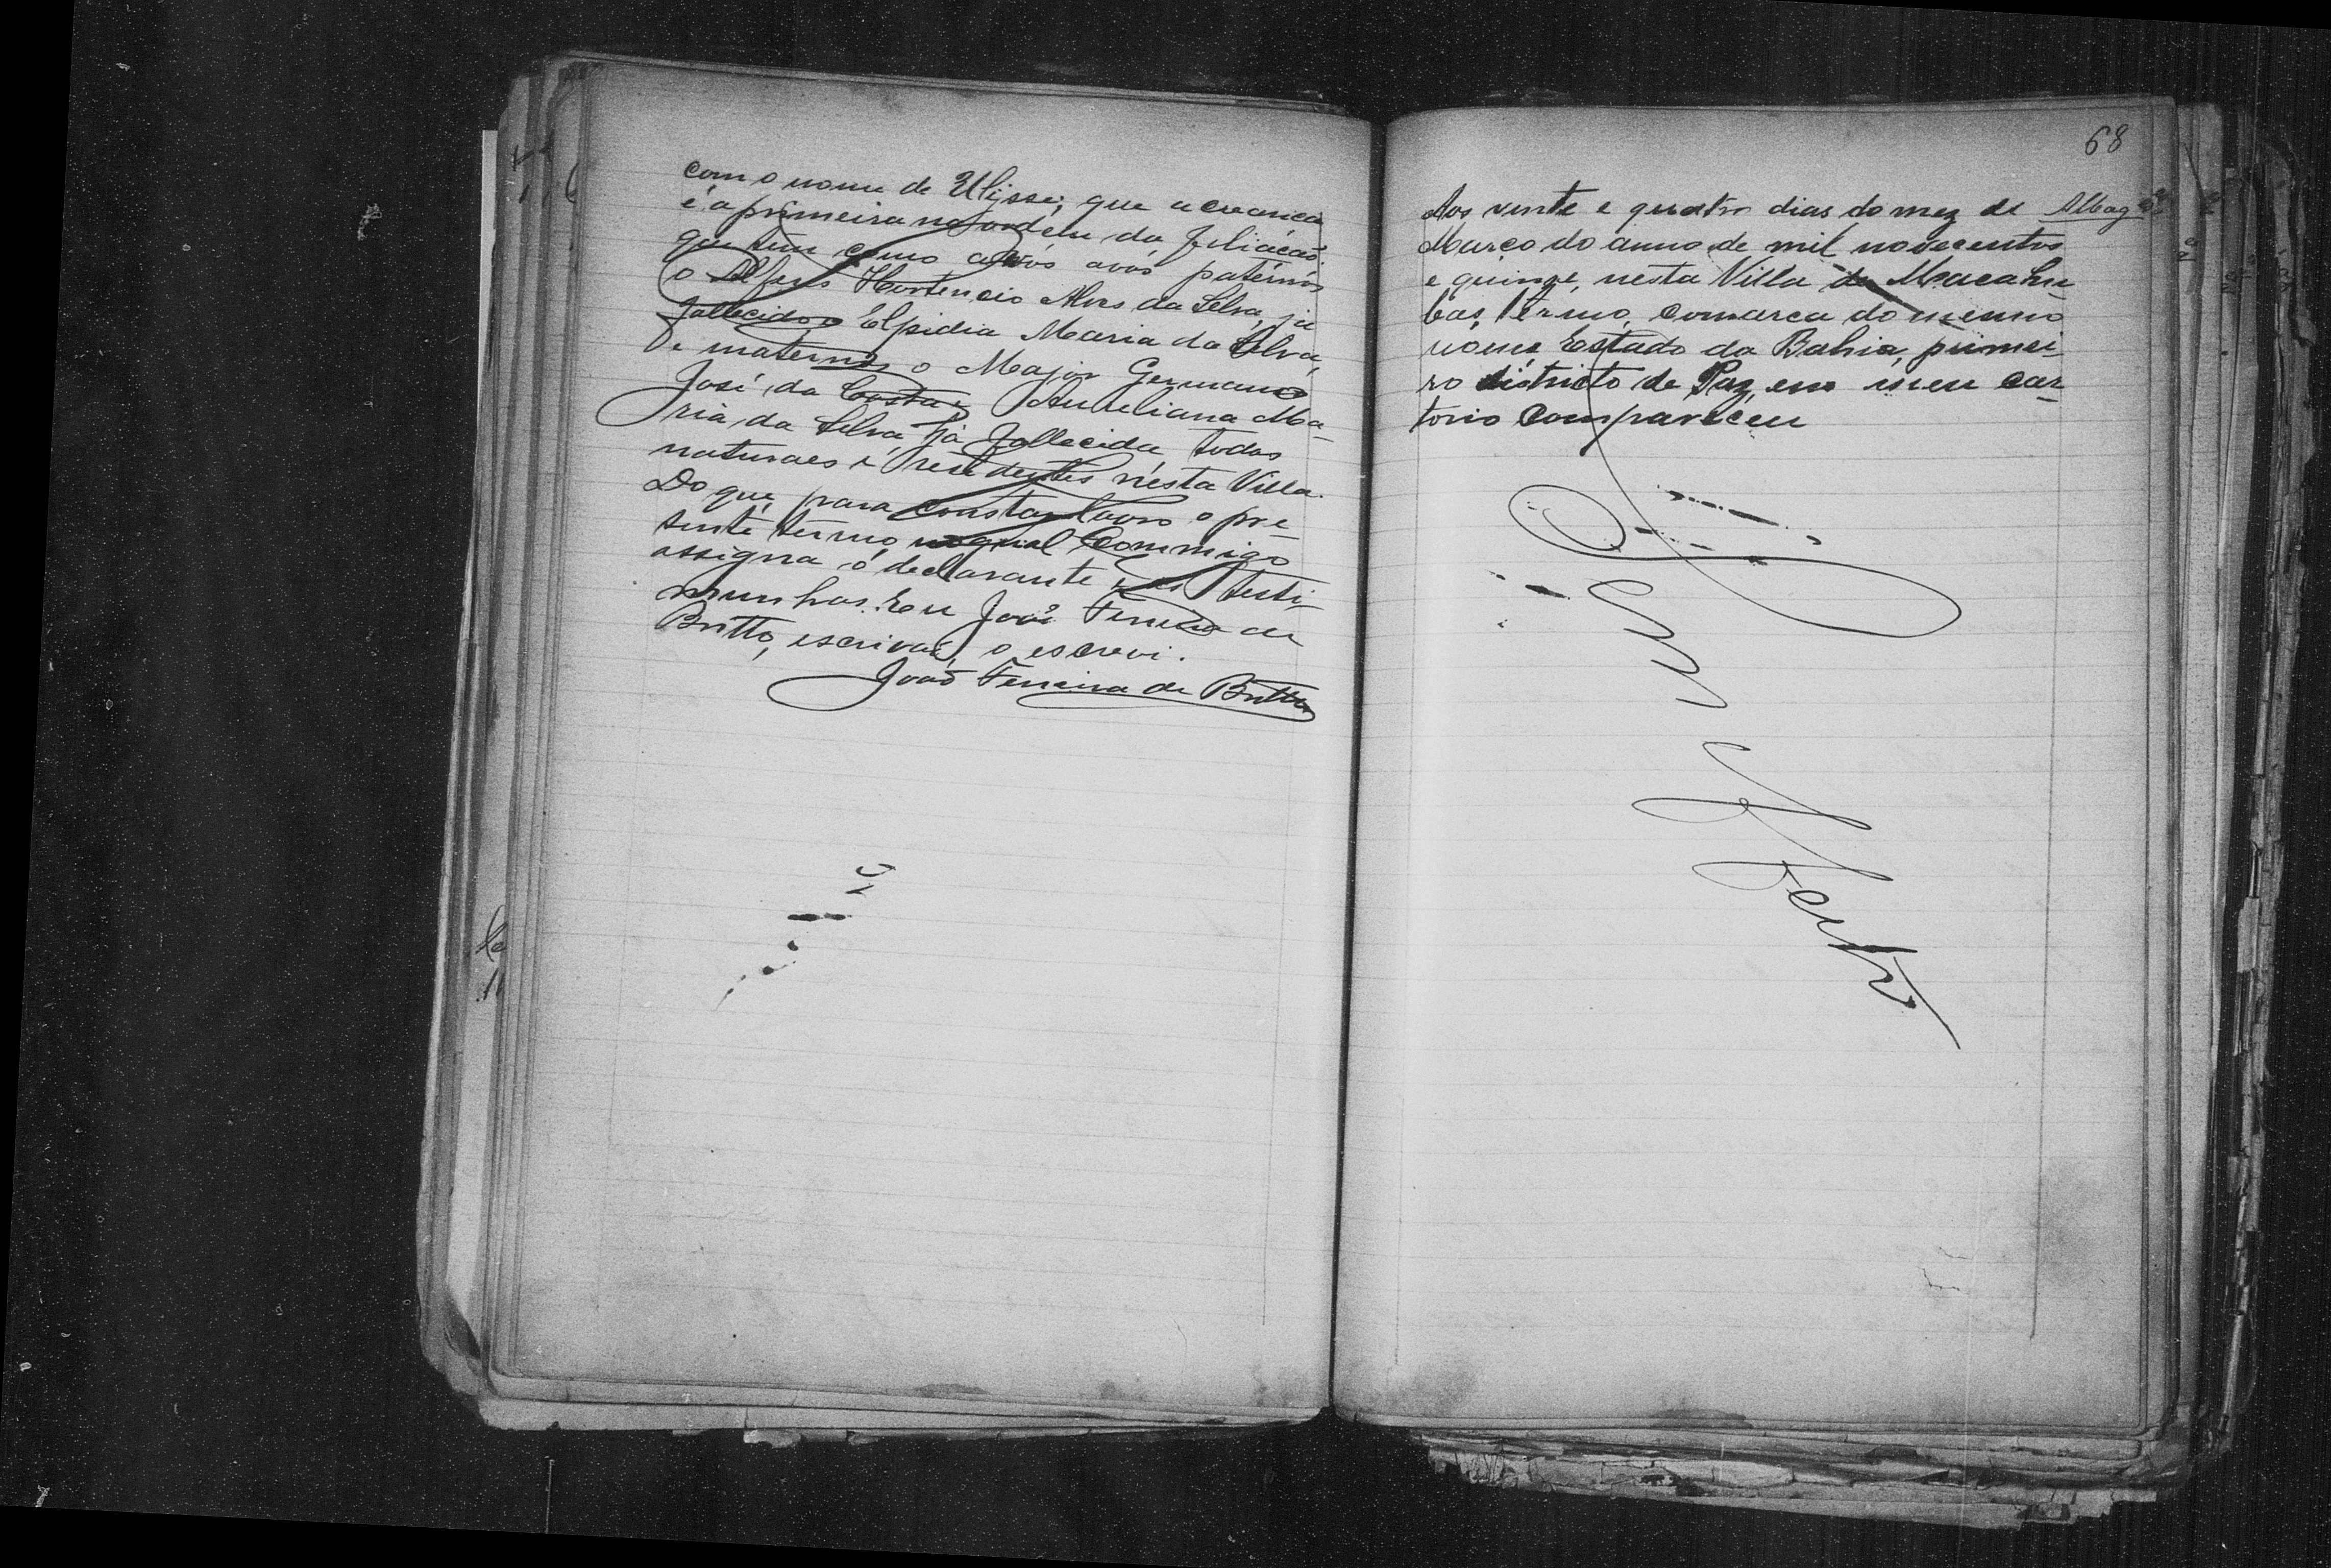 com o nome de Ulysse, que a creança
é a primeira na ordem da filiação.
que tem como avós paternos
o Alferes Hortencio Alves da Silva, já
fallecido e Elpidia Maria da Silva,
e maternos o Major Germano
José da Costa e Aureliana Ma-
ria da Silva já fallecida todos
naturaes e residentes nesta Villa.
Do que, para constar lavro o pre-
sente termo, no qual commigo
assigna o declarante e as testi-
munhas. Eu João Ferreira de
Britto, escrivão, o escrevi.
João Ferreira de Britto
68
Aos vinte e quatro dias do mez de
Março do anno de mil novecentos
e quinze, nesta Villa de Macahu-
bas, termo, comarca do mesmo
nome Estado da Bahia, primei-
ro districto de Paz, em meu car-
torio compareceu
Sem effeito